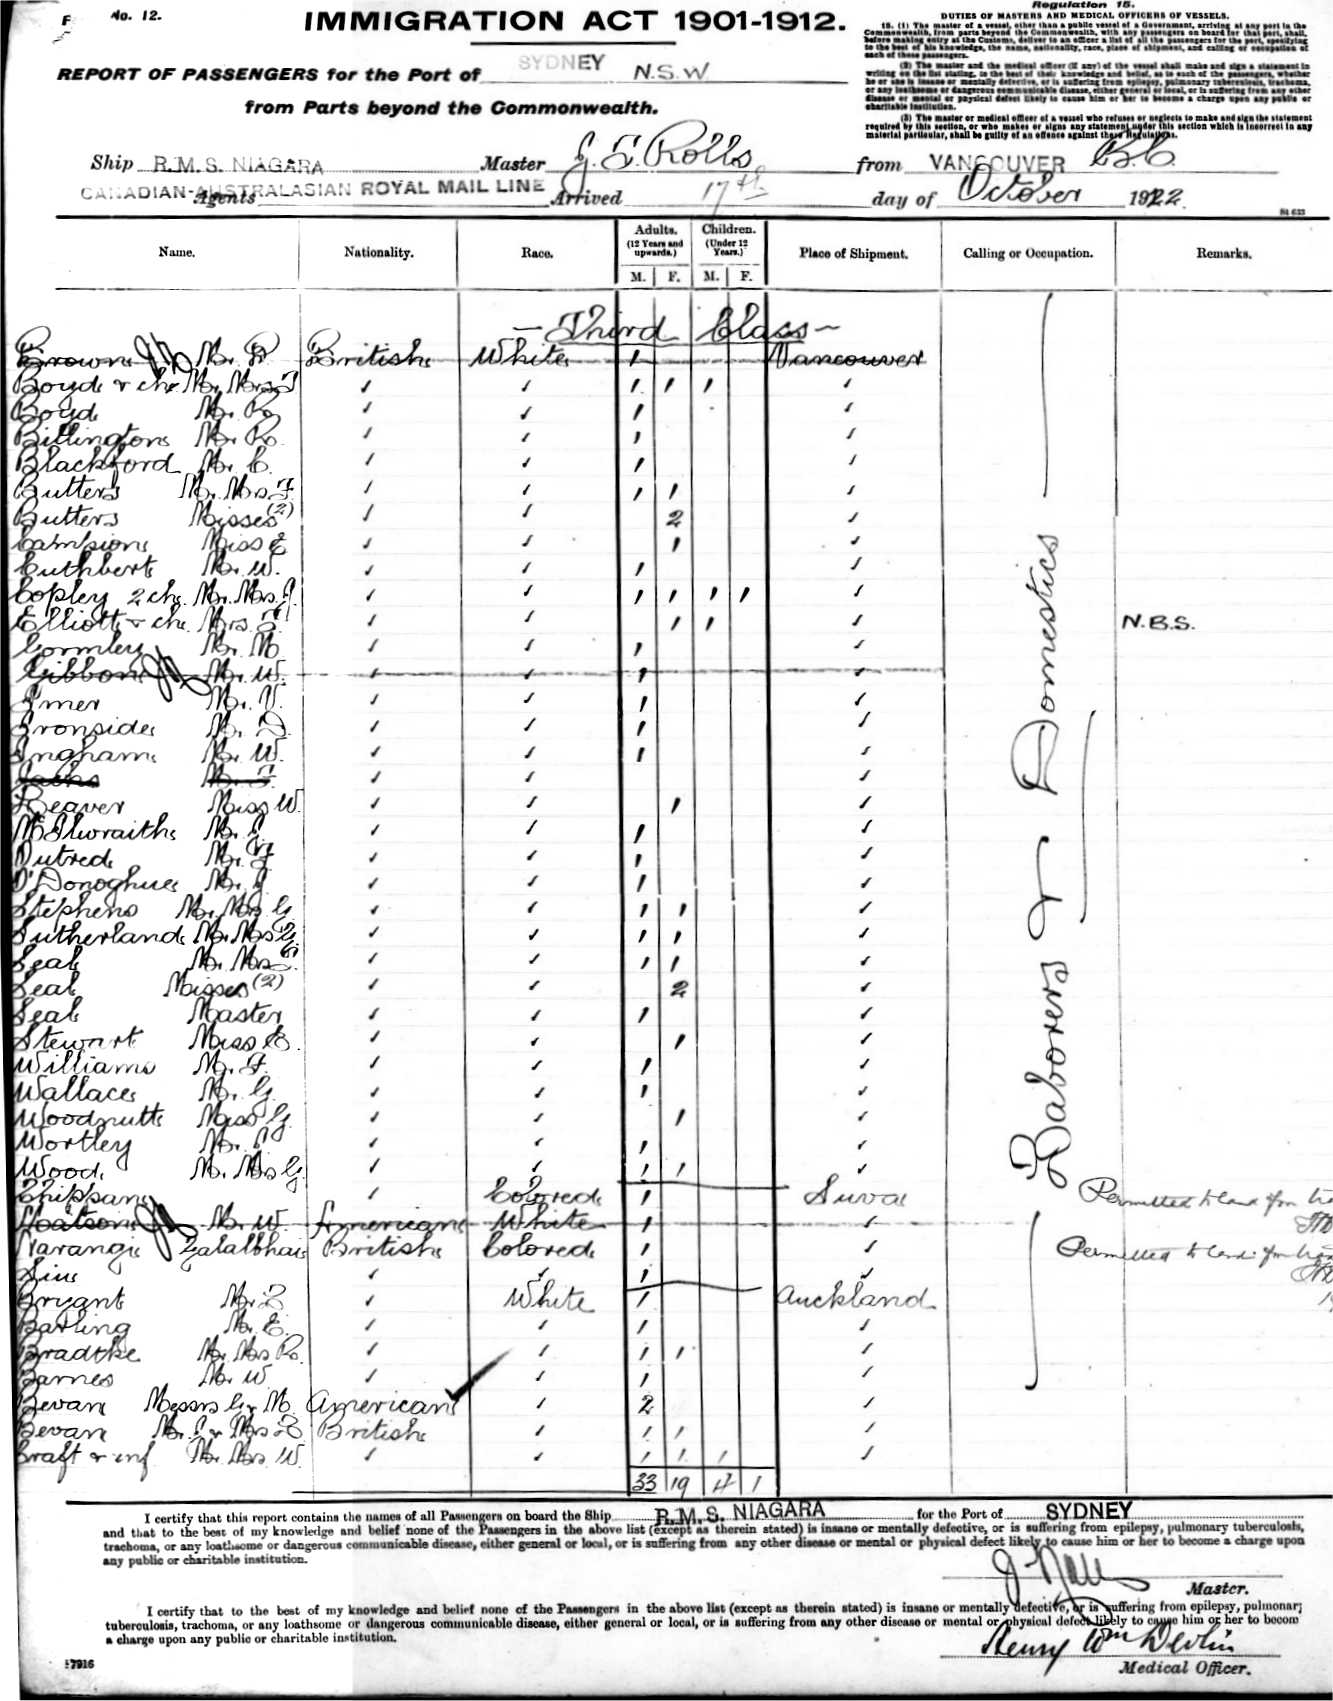 F No. 12.
IMMIGRATION ACT 1901-1912.
REPORT OF PASSENGERS for the Port of SYDNEY N.S.W
from Parts beyond the Commonwealth.
Regulation 15.
DUTIES OF MASTERS AND MEDICAL OFFICERS OF VESSELS.
15. (1) The master of a vessel, other than a public vessel of a Government, arriving at any port in the
Commonwealth, from parts beyond the Commonwealth, with any passengers on board for that port, shall,
before making entry at the Customs, deliver to an officer a list of all the passengers for the port, specifying
to the best of his knowledge, the name, nationality, race, place of shipment, and calling or occupation of
each of those passengers.
(2) The master and the medical officer (if any) of the vessel shall make and sign a statement in
writing on the list stating, to the best of their knowledge and belief, as to each of the passengers, whether
he or she is insane or mentally defective, or is suffering from epilepsy, pulmonary tuberculosis, trachoma,
or any loathsome or dangerous communicable disease, either general or local, or is suffering from any other
disease or mental or physical defect likely to cause him or her to become a charge upon any public or
charitable institution.
(3) The master or medical officer of a vessel who refuses or neglects to make and sign the statement
required by this section, or who makes or signs any statement under this section which is incorrect in any
material particular, shall be guilty of an offence against these Regulations.
Ship R.M.S. NIAGARA Master J. T. Rolls from VANCOUVER B.C
CANADIAN-AUSTRALASIAN ROYAL MAIL LINE Agents Arrived 17th day of October 1922
St 633
Name. Nationality. Race. Adults. (12 Years and upwards.) Children. (Under 12 Years.) Place of Shipment. Calling or Occupation. Remarks.
M. F. M. F.
- Third Class -
Brown Mr. R British White 1 Vancouver
Boyd & ch Mr. Mrs J ✓ ✓ 1 1 1 ✓
Boyd Mr. R ✓ ✓ 1 ✓
Billington Mr. R. ✓ ✓ 1 ✓
Blackford Mr. C. ✓ ✓ 1 ✓
Butters Mr. Mrs F ✓ ✓ 1 1 ✓
Butters Misses (2) ✓ ✓ 2 ✓
Campion Miss E ✓ ✓ 1 ✓
Cuthbert Mr. W. ✓ ✓ 1 ✓
Copley 2 ch. Mr. Mrs. J. ✓ ✓ 1 1 1 1 ✓
Elliott & ch. Mrs. ✓ ✓ 1 1 ✓ N.B.S.
Gormley Mr. M ✓ ✓ 1 ✓
Gibbons Mr. W. ✓ ✓ 1 ✓
Imer Mr. V. ✓ ✓ 1 ✓
Ironside Mr. D. ✓ ✓ 1 ✓
Ingham Mr. W. ✓ ✓ 1 ✓
Jacks Mr. J. ✓ ✓ ✓
Leaver Miss W. ✓ ✓ 1 ✓
McIlwraith Mr. J ✓ ✓ 1 ✓
Outred Mr. ✓ ✓ 1 ✓
O'Donoghue Mr. J ✓ ✓ 1 ✓
Stephens Mr. Mrs G. ✓ ✓ 1 1 ✓
Sutherland Mr. Mrs G. ✓ ✓ 1 1 ✓
Seal Mr. Mrs ✓ ✓ 1 1 ✓
Seal Misses (2) ✓ ✓ 2 ✓
Seal Master ✓ ✓ 1 ✓
Stewart Miss E. ✓ ✓ 1 ✓
Williams Mr. F. ✓ ✓ 1 ✓
Wallace Mr. G. ✓ ✓ 1 ✓
Woodnutt Miss G. ✓ ✓ 1 ✓
Wortley Mr. J ✓ ✓ 1 ✓
Wood. Mr. Mrs G ✓ ✓ 1 1 ✓
Laborers & Domestics
Chippan ✓ Colored 1 Suva Permitted to land for
Mr. W. American White 1 ✓
Narangi British Colored 1 ✓ Permitted to land for
✓ ✓ 1 ✓
Bryant Mr. ✓ White 1 Auckland
Barling Mr. E. ✓ ✓ 1 ✓
Bradtke Mr. Mrs R. ✓ ✓ 1 1 ✓
Barnes Mr. W ✓ ✓ 1 ✓
Bevan Messrs G & M. American ✓ 2 ✓
Bevan Mr. J & Mrs British ✓ 1 1 ✓
Craft & inf Mr. Mrs. W. ✓ ✓ 1 1 1 ✓
33 19 4 1
I certify that this report contains the names of all Passengers on board the Ship R.M.S. NIAGARA for the Port of SYDNEY
and that to the best of my knowledge and belief none of the Passengers in the above list (except as therein stated) is insane or mentally defective, or is suffering from epilepsy, pulmonary tuberculosis,
trachoma, or any loathsome or dangerous communicable disease, either general or local, or is suffering from any other disease or mental or physical defect likely to cause him or her to become a charge upon
any public or charitable institution.
J Rolls
Master.
I certify that to the best of my knowledge and belief none of the Passengers in the above list (except as therein stated) is insane or mentally defective, or is suffering from epilepsy, pulmonary
tuberculosis, trachoma, or any loathsome or dangerous communicable disease, either general or local, or is suffering from any other disease or mental or physical defect likely to cause him or her to becom
a charge upon any public or charitable institution.
Henry Wm Devlin
Medical Officer.
17916